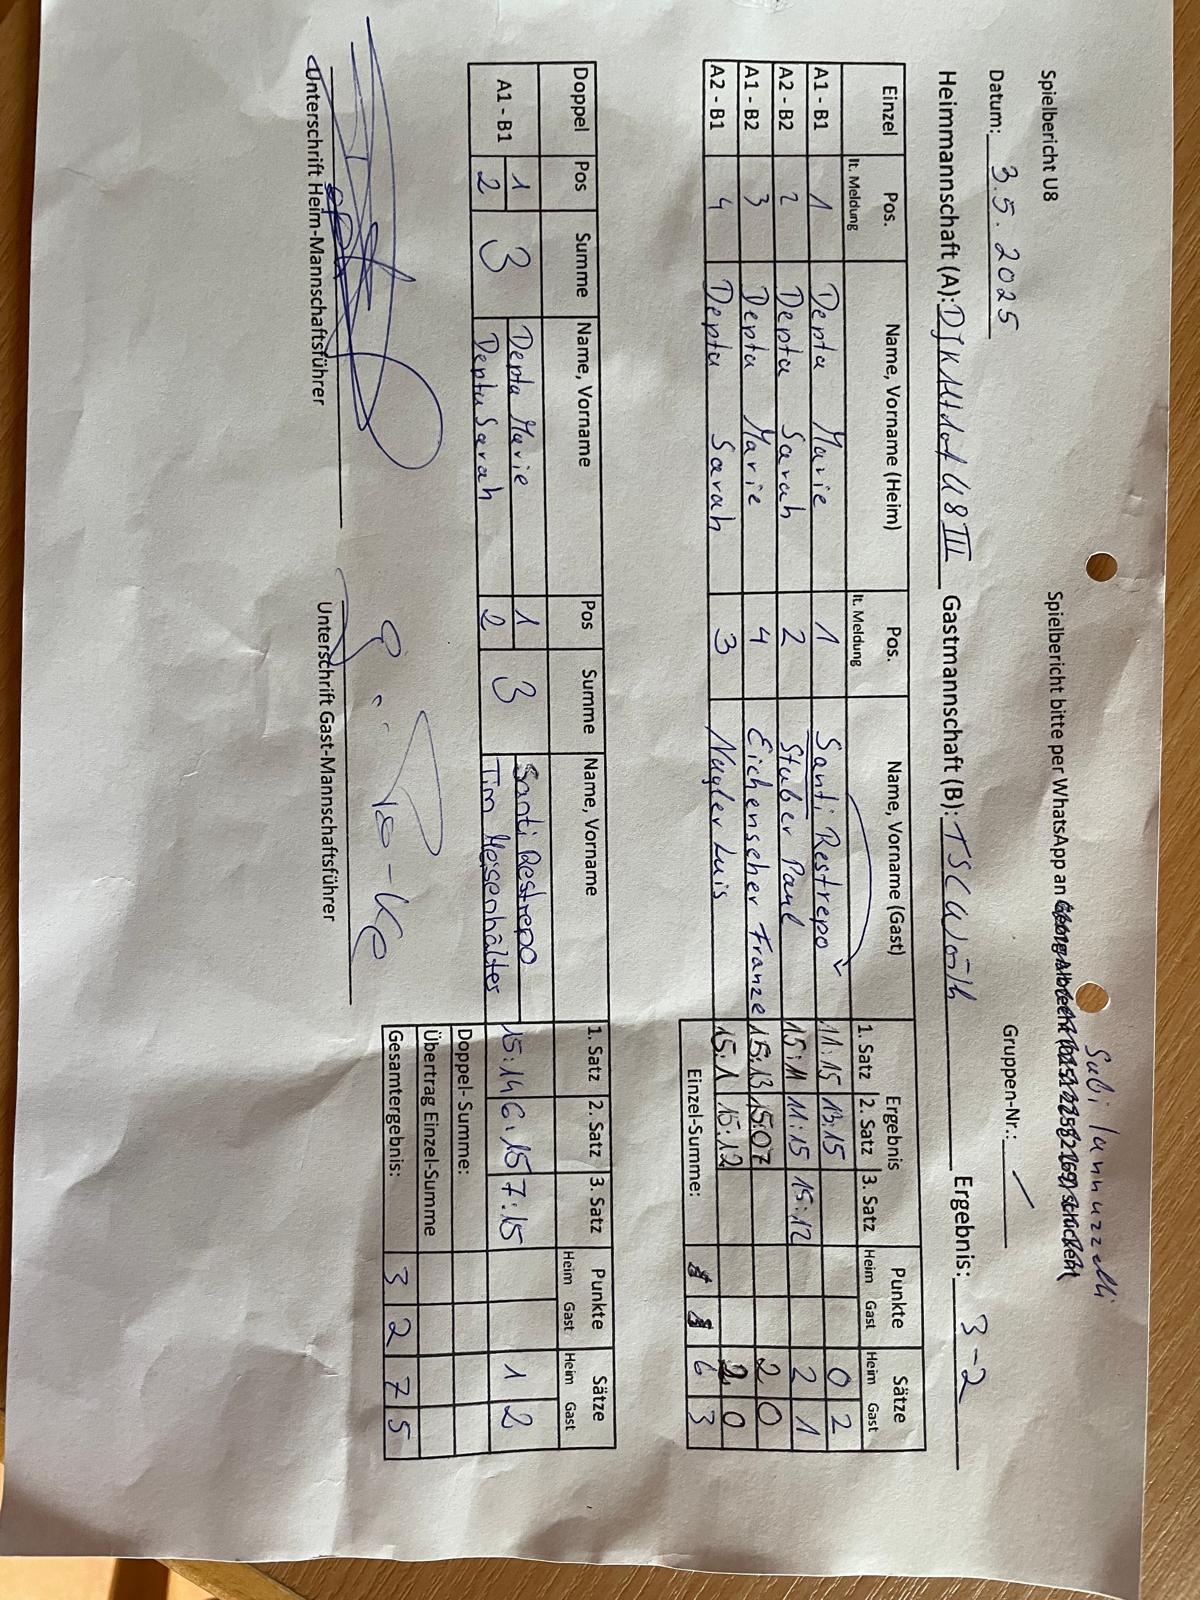 Spielbericht U8
Spielbericht bitte per WhatsApp an
Datum: 3.5.2025
Gruppen-Nr.: /
Heimmannschaft (A): DJK Altdorf U8 III Gastmannschaft (B): TSC Wörth Ergebnis: 3-2
Einzel Pos. lt. Meldung Name, Vorname (Heim) Pos. lt. Meldung Name, Vorname (Gast) Ergebnis Punkte Sätze
1. Satz 2. Satz 3. Satz Heim Gast Heim Gast
A1 - B1 1 Depta Marie 1 Santi Restrepo 11:15 13:15 0 2
A2 - B2 2 Depta Sarah 2 Stuber Paul 15:11 11:15 15:12 2 1
A1 - B2 3 Depta Marie 4 Eichenseher Franze 15:13 15:07 2 0
A2 - B1 4 Depta Sarah 3 Nagler Luis 15:1 15:12 2 0
Einzel-Summe: 6 3
Doppel Pos Summe Name, Vorname Pos Summe Name, Vorname 1. Satz 2. Satz 3. Satz Punkte Sätze
Heim Gast Heim Gast
A1 - B1 1 3 Depta Marie 1 3 Santi Restrepo 15:14 6:15 7:15 1 2
2 Depta Sarah 2 Tim
Doppel- Summe:
Übertrag Einzel-Summe
Gesamtergebnis: 3 2 7 5
Unterschrift Heim-Mannschaftsführer
Unterschrift Gast-Mannschaftsführer